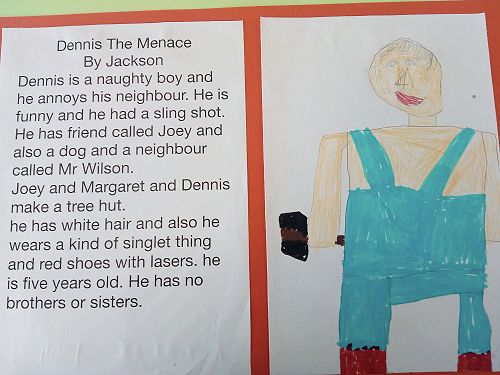 Dennis The Menace
By Jackson
Dennis is a naughty boy and
he annoys his neighbour. He is
funny and he had a sling shot.
He has friend called Joey and
also a dog and a neighbour
called Mr Wilson.
Joey and Margaret and Dennis
make a tree hut.
he has white hair and also he
wears a kind of singlet thing
and red shoes with lasers. he
is five years old. He has no
brothers or sisters.